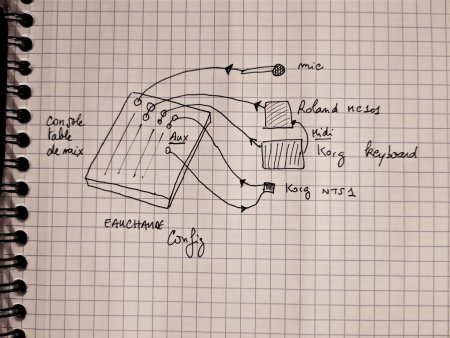 mic
Roland MC101
Midi
Korg keyboard
Console
table
de mix
Aux
Korg NTS1
EAUCHAUDE
Config